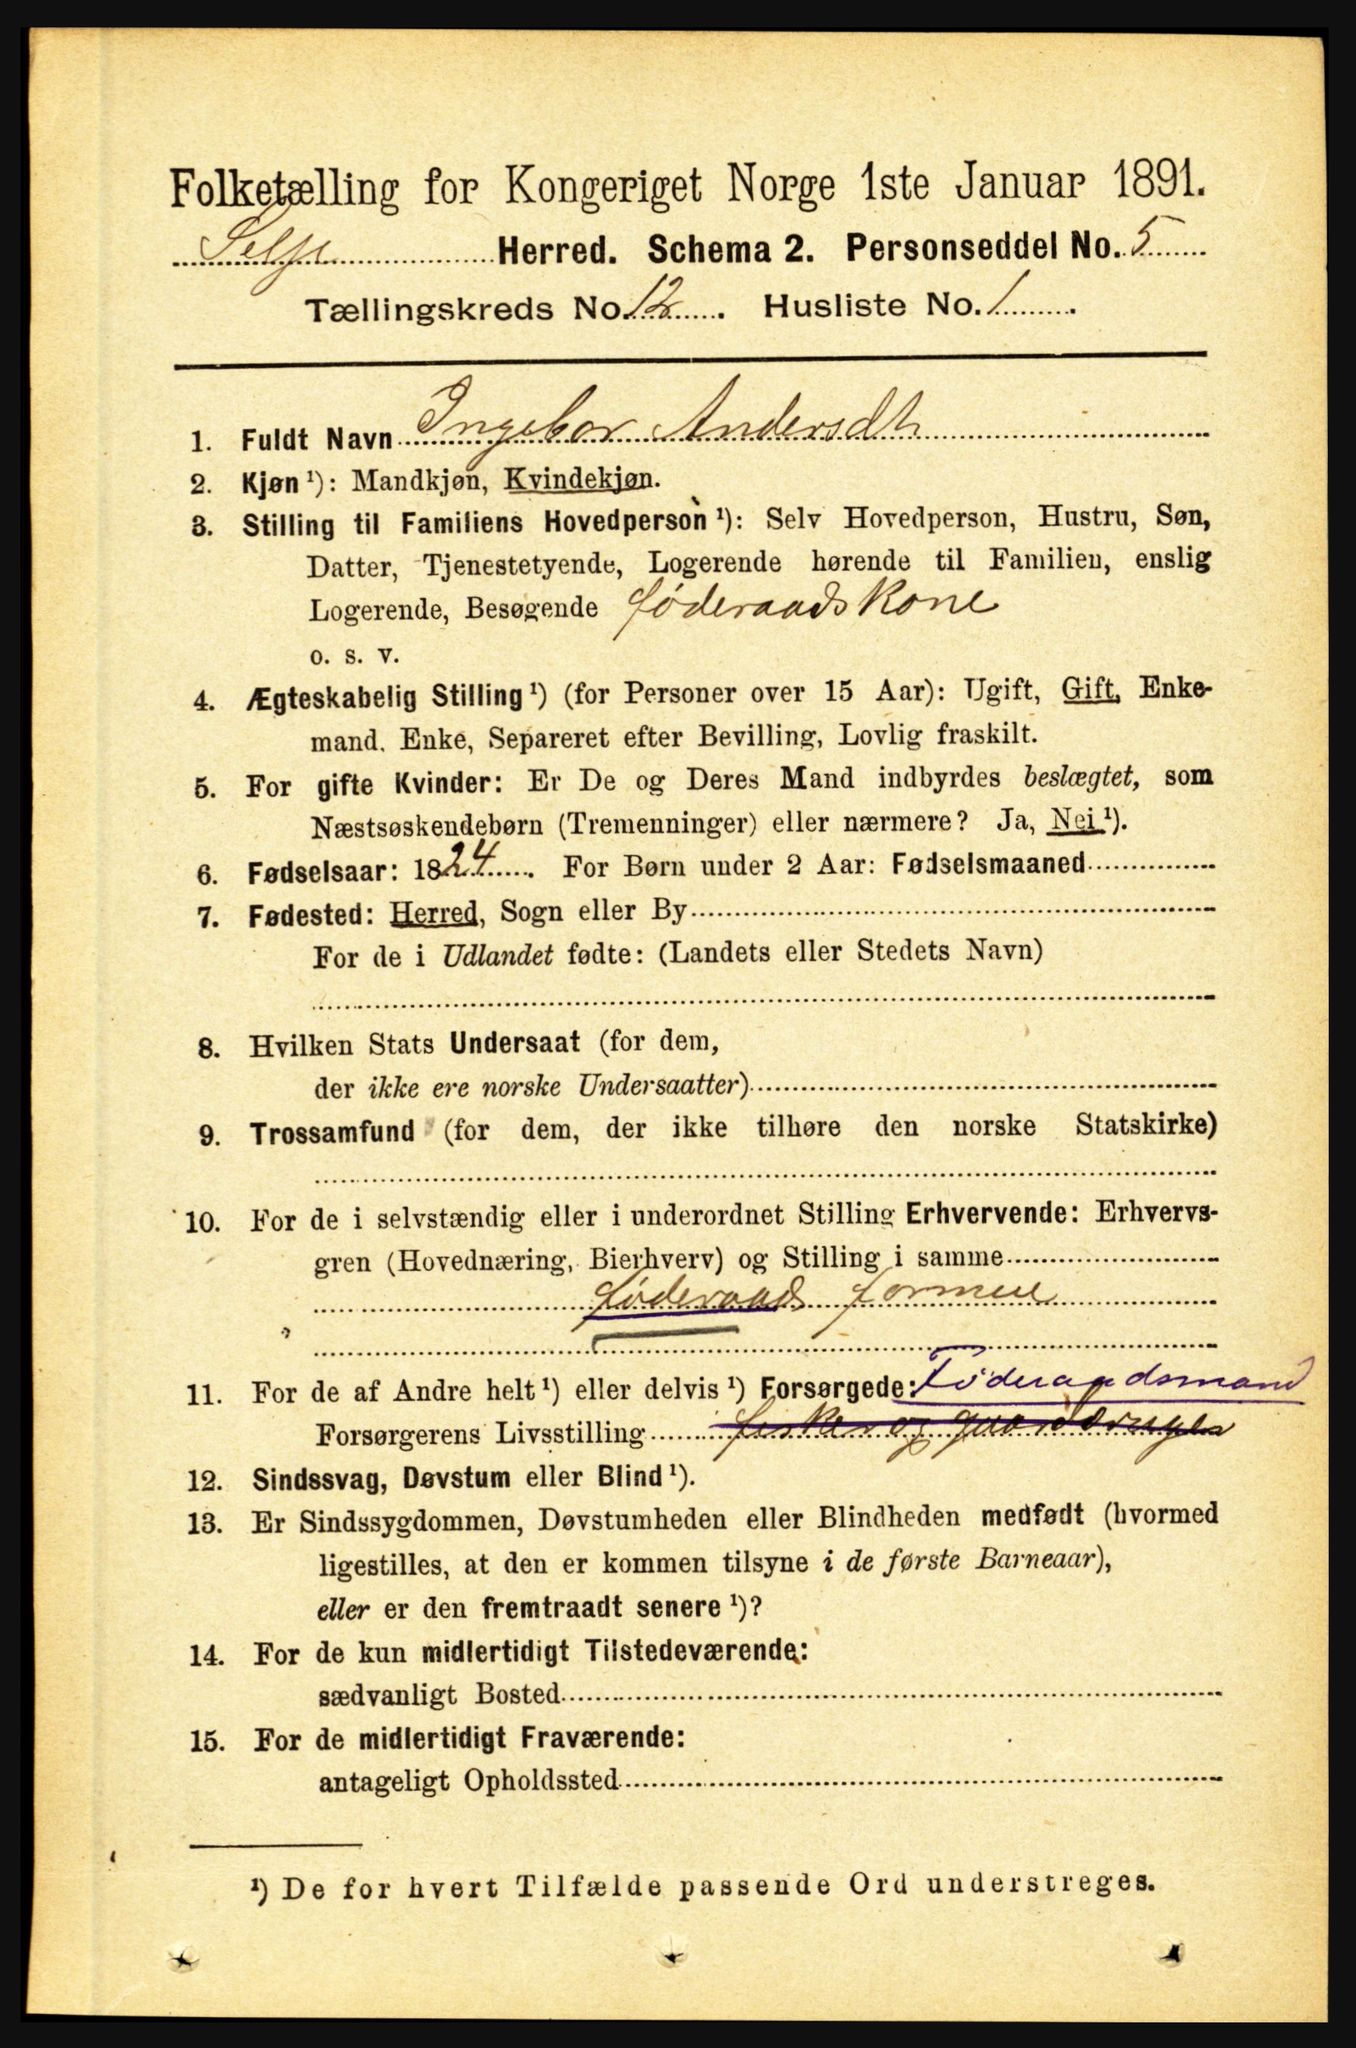 Folketælling for Kongeriget Norge 1ste Januar 1891.
Selje Herred. Schema 2. Personseddel No. 5
Tællingskreds No. 12. Husliste No. 1.
1. Fuldt Navn Ingebor Andersdt
2. Kjøn ¹): Mandkjøn, Kvindekjøn.
3. Stilling til Familiens Hovedperson ¹): Selv Hovedperson, Hustru, Søn,
Datter, Tjenestetyende, Logerende hørende til Familien, enslig
Logerende, Besøgende føderaadskone
o. s. v.
4. Ægteskabelig Stilling ¹) (for Personer over 15 Aar): Ugift, Gift, Enke-
mand, Enke, Separeret efter Bevilling, Lovlig fraskilt.
5. For gifte Kvinder: Er De og Deres Mand indbyrdes beslægtet, som
Næstsøskendebørn (Tremenninger) eller nærmere? Ja, Nei ¹).
6. Fødselsaar: 1824. For Børn under 2 Aar: Fødselsmaaned
7. Fødested: Herred, Sogn eller By
For de i Udlandet fødte: (Landets eller Stedets Navn)
8. Hvilken Stats Undersaat (for dem,
der ikke ere norske Undersaatter)
9. Trossamfund (for dem, der ikke tilhøre den norske Statskirke)
10. For de i selvstændig eller i underordnet Stilling Erhvervende: Erhvervs-
gren (Hovednæring, Bierhverv) og Stilling i samme
føderaads formue
11. For de af Andre helt ¹) eller delvis ¹) Forsørgede: Føderaadsmand
Forsørgerens Livsstilling fisker og gaardbruger
12. Sindssvag, Døvstum eller Blind ¹).
13. Er Sindssygdommen, Døvstumheden eller Blindheden medfødt (hvormed
ligestilles, at den er kommen tilsyne i de første Barneaar),
eller er den fremtraadt senere ¹)?
14. For de kun midlertidigt Tilstedeværende:
sædvanligt Bosted
15. For de midlertidigt Fraværende:
antageligt Opholdssted
¹) De for hvert Tilfælde passende Ord understreges.